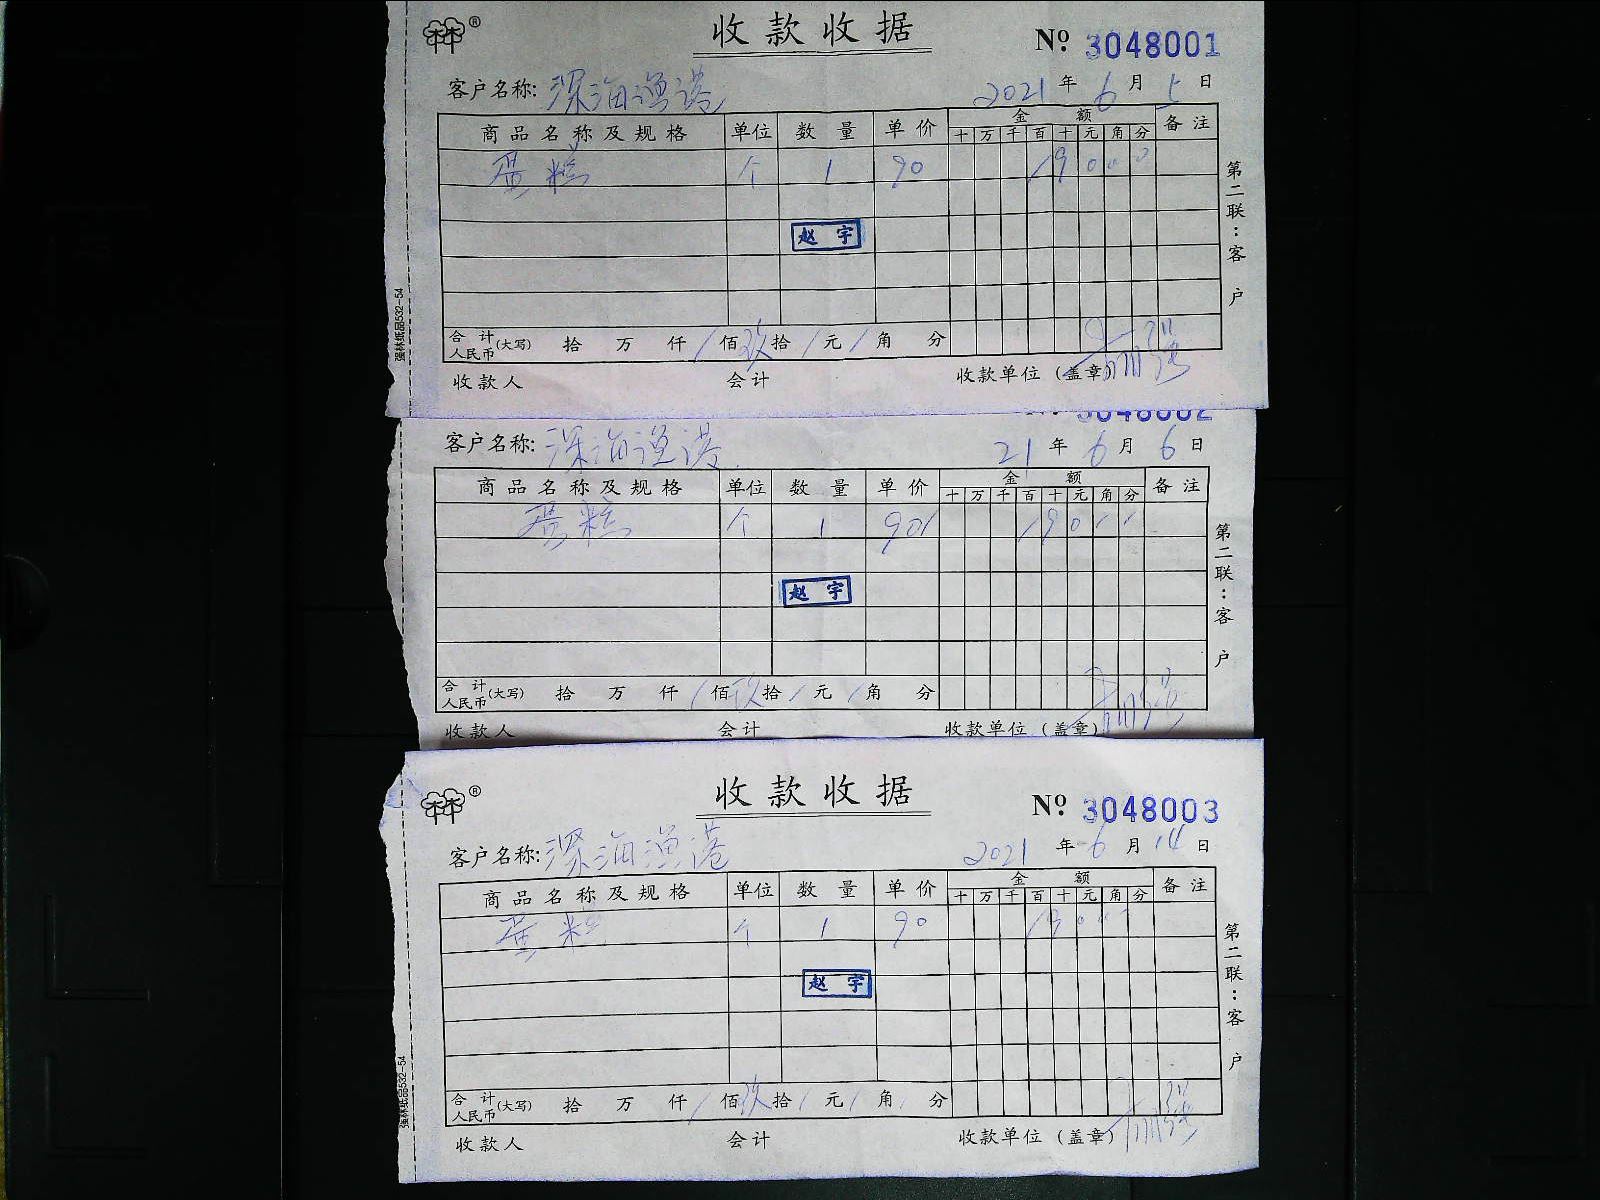 ®
收款收据
Nº 3048001
客户名称: 深海渔港 2021年6月5日
商品名称及规格 单位 数量 单价 金额 备注
十 万 千 百 十 元 角 分
蛋糕 个 1 90 / 9 0 0 0
赵宇
合计人民币(大写) 拾 万 仟 / 佰 玖 拾 / 元 / 角 分
收款人 会计 收款单位(盖章)
第二联:客户
强林纸品532-54
3048002
客户名称: 深海渔港 21年6月6日
商品名称及规格 单位 数量 单价 金额 备注
十 万 千 百 十 元 角 分
蛋糕 个 1 90/ / 9 0 / /
赵宇
合计人民币(大写) 拾 万 仟 / 佰 玖 拾 / 元 / 角 分
收款人 会计 收款单位(盖章)
第二联:客户
®
收款收据
Nº 3048003
客户名称: 深海渔港 2021年6月14日
商品名称及规格 单位 数量 单价 金额 备注
十 万 千 百 十 元 角 分
蛋糕 个 1 90 / 9 0 0 0
赵宇
合计人民币(大写) 拾 万 仟 / 佰 玖 拾 / 元 / 角 分
收款人 会计 收款单位(盖章)
第二联:客户
强林纸品532-54